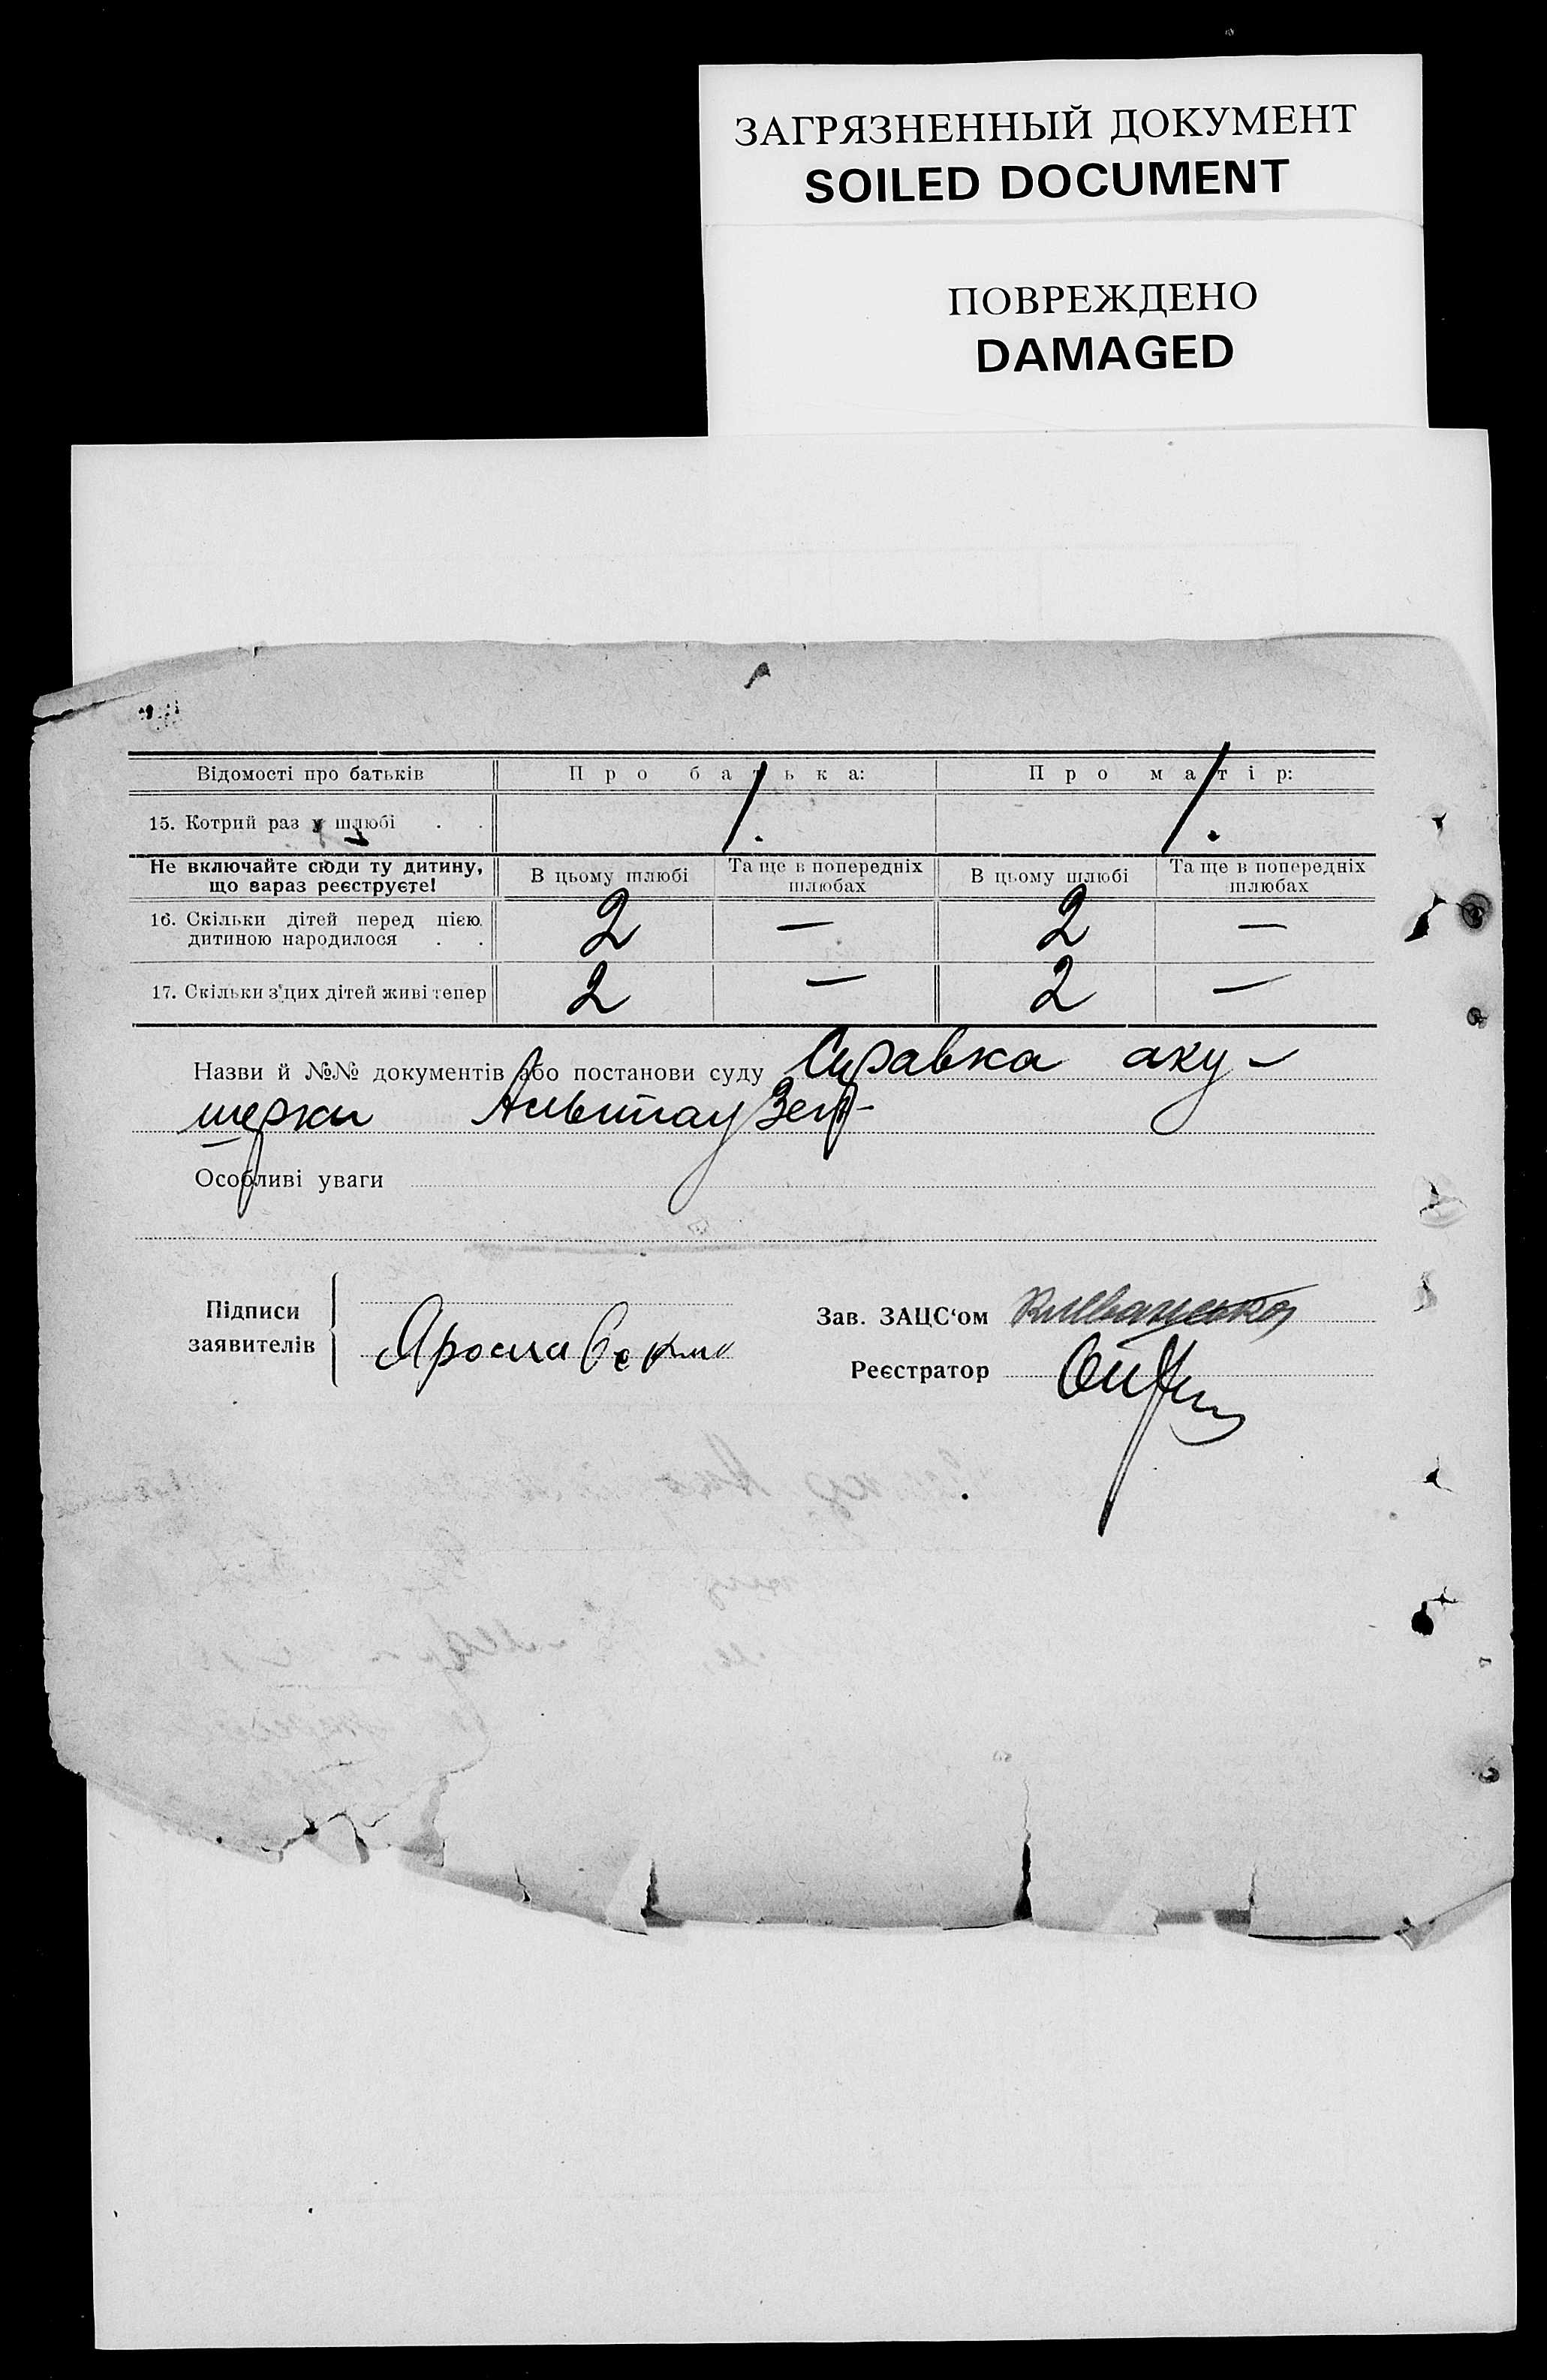 ЗАГРЯЗНЕННЫЙ ДОКУМЕНТ
SOILED DOCUMENT
ПОВРЕЖДЕНО
DAMAGED
Відомості про батьків Про батька: Про матір:
15. Котрий раз у шлюбі . . 1. 1.
Не включайте сюди ту дитину, що зараз реєструєте! В цьому шлюбі Та ще в попередніх шлюбах В цьому шлюбі Та ще в попередніх шлюбах
16. Скільки дітей перед цією дитиною народилося . . 2 — 2 —
17. Скільки з цих дітей живі тепер 2 — 2 —
Назви й №№ документів або постанови суду Справка аку-
шерки
Особливі уваги
Підписи заявителів
Зав. ЗАЦС'ом
Реєстратор